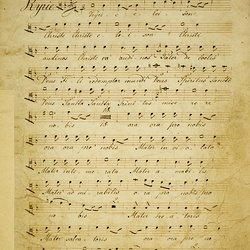 Kyrie
Christe Christe e lei son Christe
audi nos Christe ex audi nos Pater de coelis
Deus Fili redemptor mundi Deus Spiritus Sancte
Deus Sancta Sancta Trini tas mise re re
no bis ora ora pro nobis
ora ora pro nobis Mater in vi o lata
Mater inte me rata Mater a mabi lis
Mater ad mi rabilis ora pro nobis
no bis Mater Cre a toris
Mater salva toris ora ora pro no bis